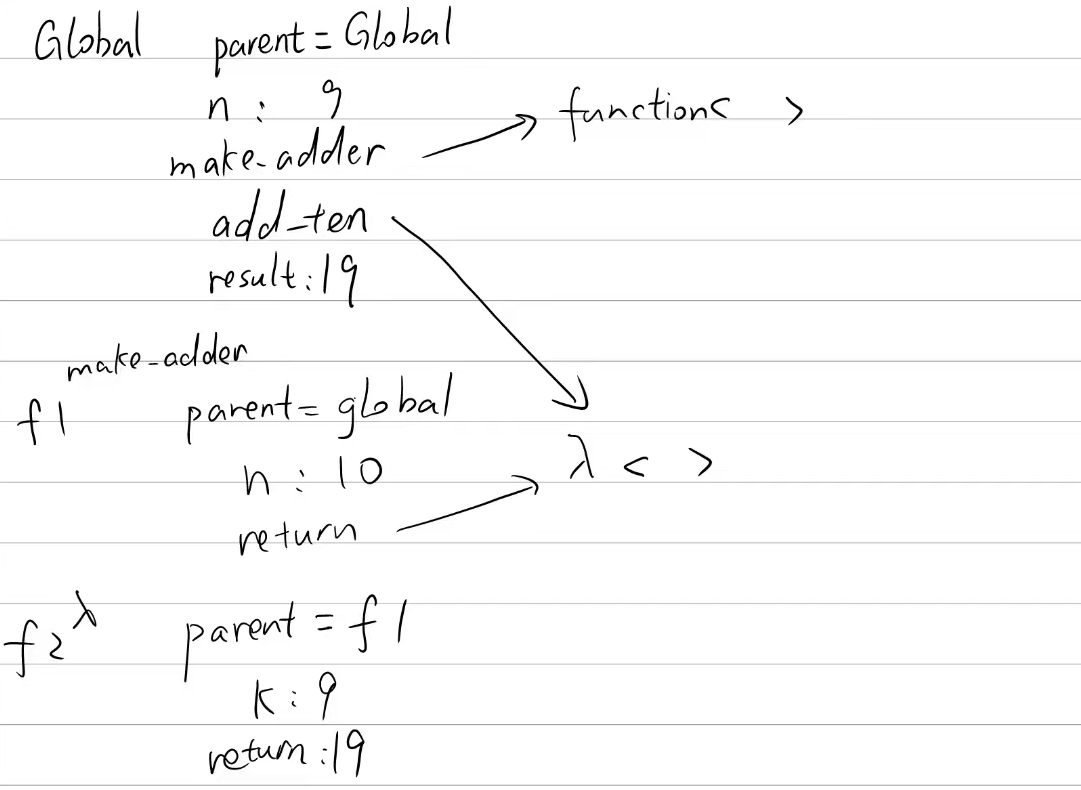 Global parent = Global
n : 9
make-adder → function< >
add_ten
result : 19
make-adder
f1 parent = global
n : 10
λ < >
return
f2 λ parent = f1
k : 9
return : 19